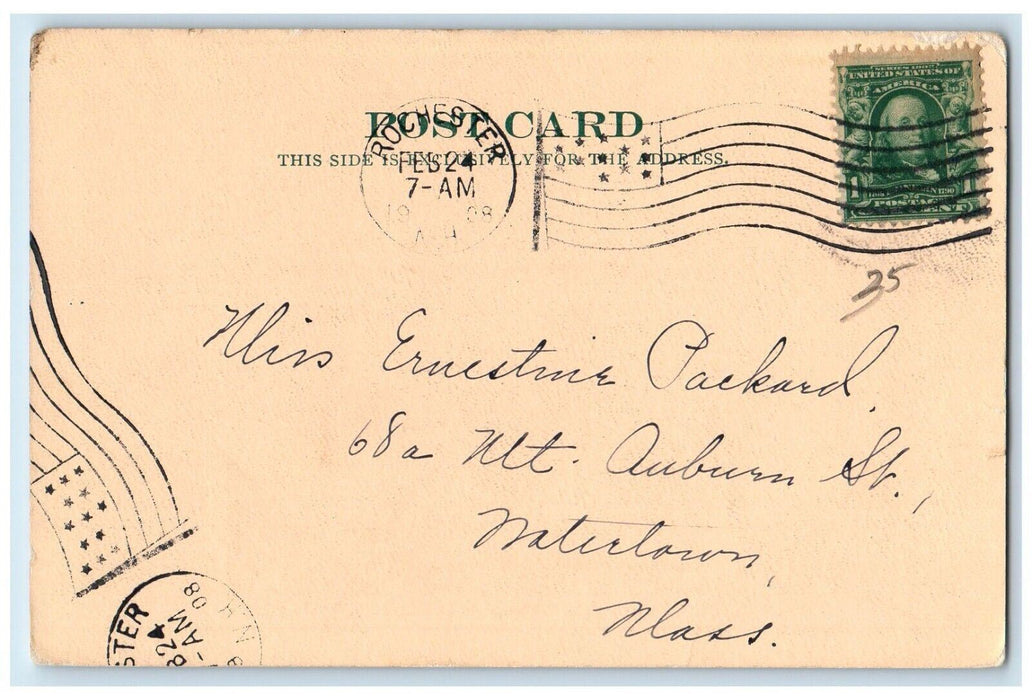 POST CARD
THIS SIDE IS EXCLUSIVELY FOR THE ADDRESS.
ROCHESTER
FEB 24
7-AM
1908
N.H.
SERIES 1902
UNITED STATES OF
AMERICA
1 1
POSTAGE
ONE CENT
25
Miss Ernestine Packard,
68a Mt. Auburn St.,
Watertown,
Mass.
STER
B24
-AM
08
N.H.